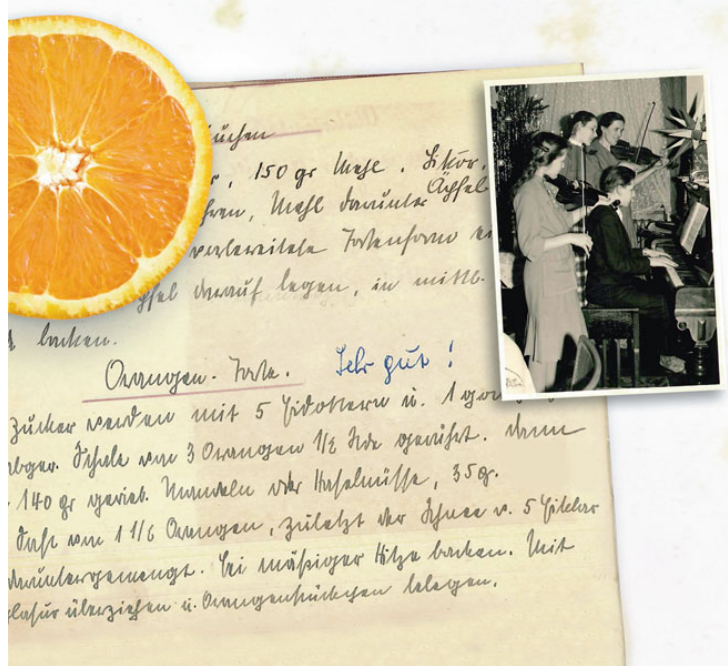 kuchen
150 gr Mehl. Likör,
Mehl darunter Äpfel
vorbereitete Tortenform
darauf legen, in mittl.
backen.
Orangen-Torte. Sehr gut!
Zucker werden mit 5 Eidottern u. 1
abger. Schale von 3 Orangen 1/2 Stde gerührt. dann
140 gr gerieb. Mandeln oder Haselnüsse, 35 gr.
Saft von 1 1/6 Orangen, zuletzt der Schnee v. 5 Eiklar
daruntergemengt. bei mäßiger Hitze backen. Mit
überziehen u. Orangenstückchen belegen.